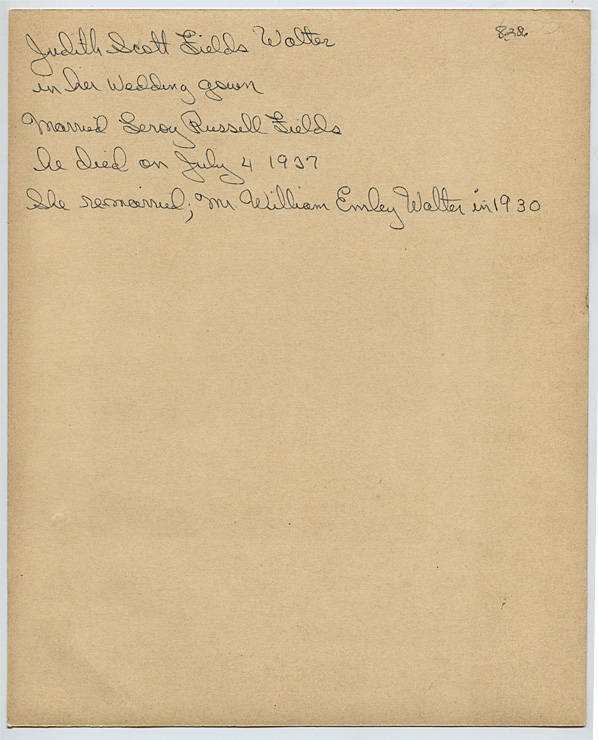 Judith Scott Fields Walter 838
in her wedding gown
Married Leroy Russell Fields
he died on July 4 1937
She remarried; Mr. William Emley Walter in 1930